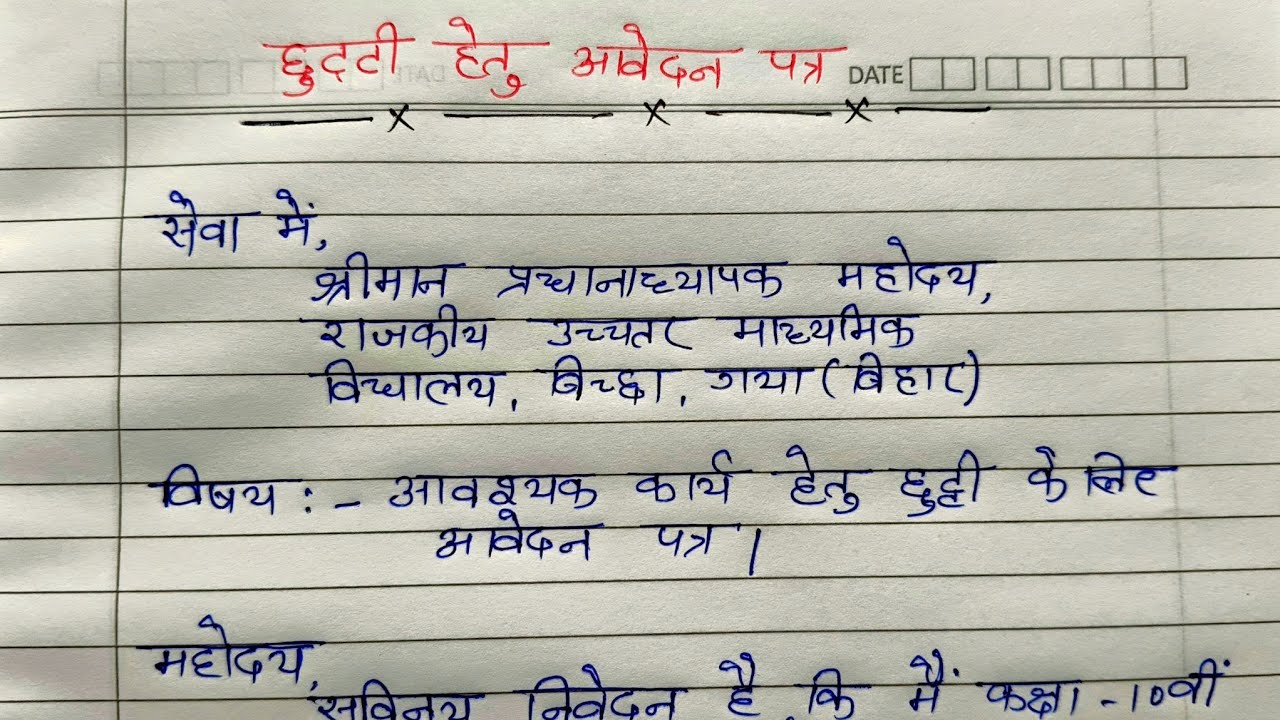 छुट्टी हेतु आवेदन पत्र DATE
सेवा में,
श्रीमान प्रधानाध्यापक महोदय,
राजकीय उच्चतर माध्यमिक
विद्यालय, बिच्छा, गया (बिहार)
विषय : - आवश्यक कार्य हेतु छुट्टी के लिए
आवेदन पत्र ।
महोदय,
सविनय निवेदन है, कि मैं कक्षा -10वीं